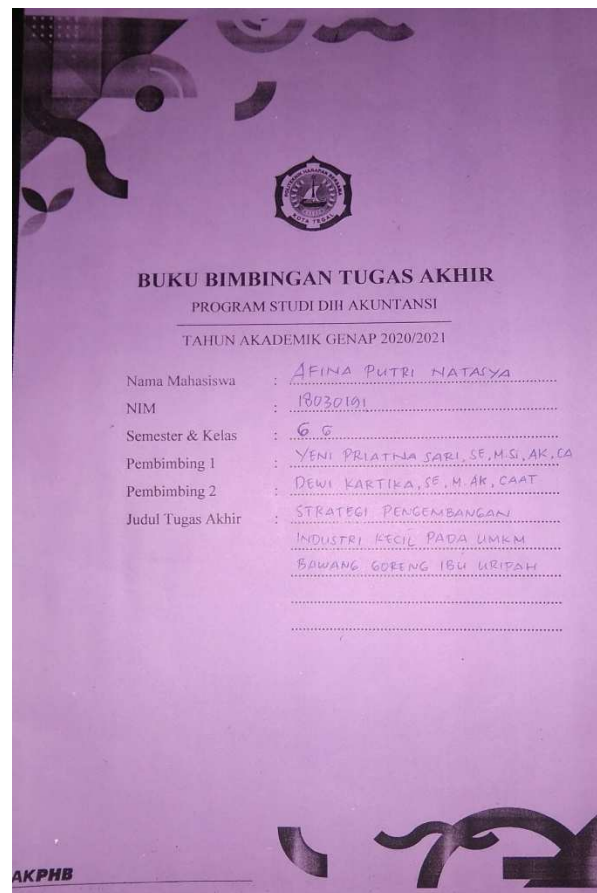 POLITEKNIK HARAPAN BERSAMA
KOTA TEGAL
BUKU BIMBINGAN TUGAS AKHIR
PROGRAM STUDI DIII AKUNTANSI
TAHUN AKADEMIK GENAP 2020/2021
Nama Mahasiswa : AFINA PUTRI NATASYA
NIM : 18030191
Semester & Kelas : 6 G
Pembimbing 1 : YENI PRIATNA SARI, SE, M.SI, AK, CA
Pembimbing 2 : DEWI KARTIKA, SE, M.AK, CAAT
Judul Tugas Akhir : STRATEGI PENGEMBANGAN
INDUSTRI KECIL PADA UMKM
BAWANG GORENG IBU URIPAH
AKPHB